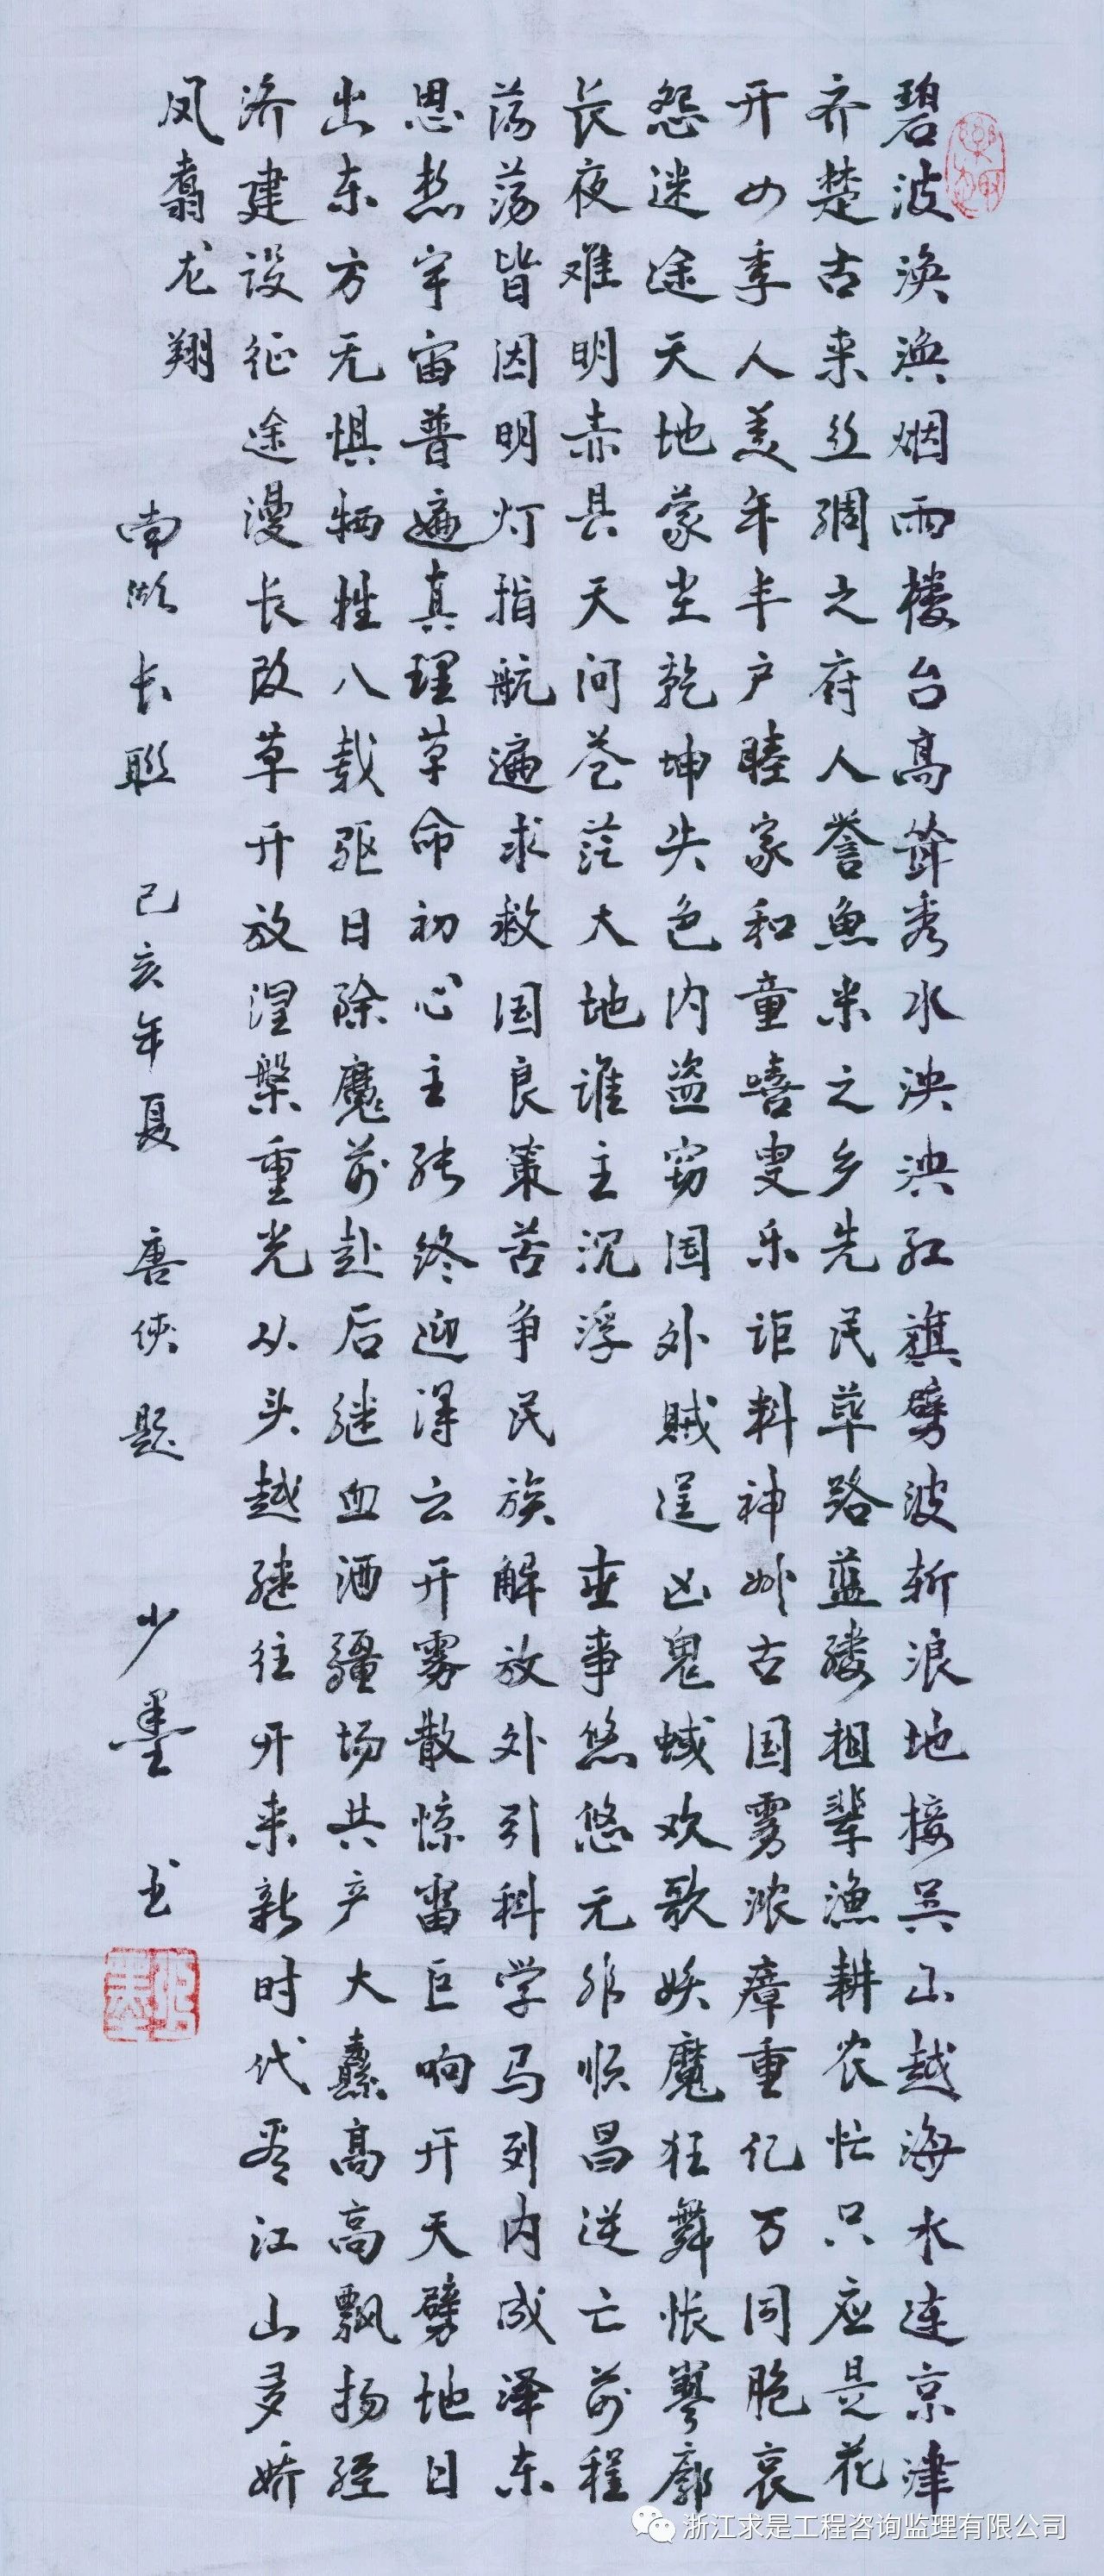 碧波涣涣烟雨楼台高耸秀水泱泱红旗劈波斩浪地接吴山越海水连京津
齐楚古来丝绸之府人誉鱼米之乡先民荜路蓝缕祖辈渔耕农忙只应是花
开四季人美年丰户睦家和童嘻叟乐讵料神州古国雾浓瘴重亿万同胞哀
怨迷途天地蒙尘乾坤失色内盗窃国外贼逞凶鬼蜮欢歌妖魔狂舞怅寥廓
长夜难明赤县天问苍茫大地谁主沉浮 世事悠悠无非顺昌逆亡前程
荡荡皆因明灯指航遍求救国良策苦争民族解放外引科学马列内成泽东
思想宇宙普遍真理革命初心主张终迎得云开雾散惊雷巨响开天劈地日
出东方无惧牺牲八载驱日除魔前赴后继血洒疆场共产大纛高高飘扬经
济建设征途漫长改革开放涅槃重光从头越继往开来新时代看江山多娇
凤翥龙翔
南湖长联 己亥年夏 唐侠题 少墨书
浙江求是工程咨询监理有限公司